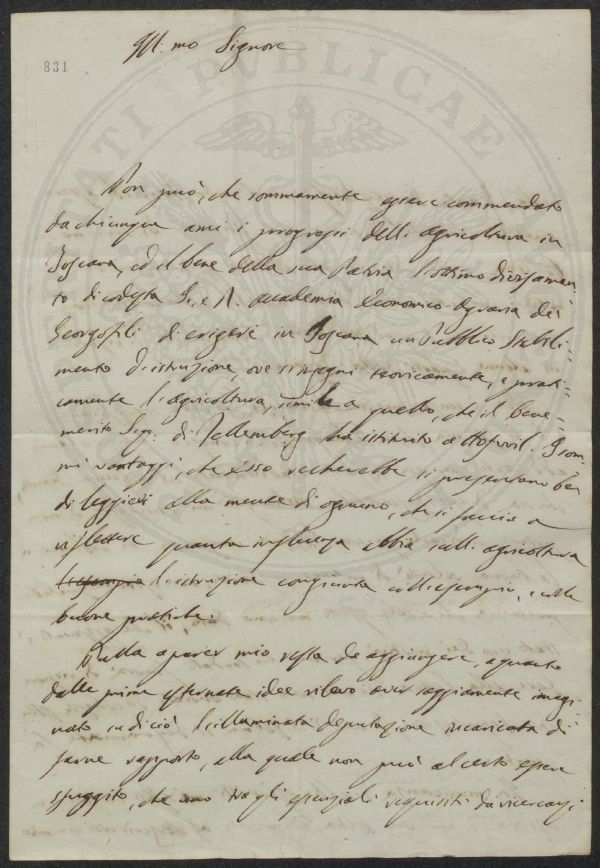 Ill.mo Signore
831
Non può, che sommamente essere commendato
da chiunque ami i progressi dell'agricoltura in
Toscana, ed il bene della sua Patria l'ottimo divisamen=
to di codesta I. e R. Accademia Economico-Agraria dei
Georgofili di erigere in Toscana un Pubblico Stabili=
mento d'istruzione, ove s'insegni teoricamente, e prati=
camente l'agricoltura, simile a quello, che il bene=
merito Sigr. di Fellemberg ha istituito a Hofwil. I som=
mi vantaggi, che esso recherebbe si presentano ben
di leggieri alla mente di ognuno, che si faccia a
riflettere quanta influenza abbia sull'agricoltura
l'istruzione congiunta coll'esempio, e colle
buone pratiche.
Nulla a parer mio resta da aggiungere, a quanto
dalle prime esternate idee rilevo aver saggiamente imagi=
nato su di ciò l'illuminata deputazione incaricata di
farne rapporto, alla quale non può al certo essere
sfuggito, che uno tra gli essenziali requisiti da ricercarsi